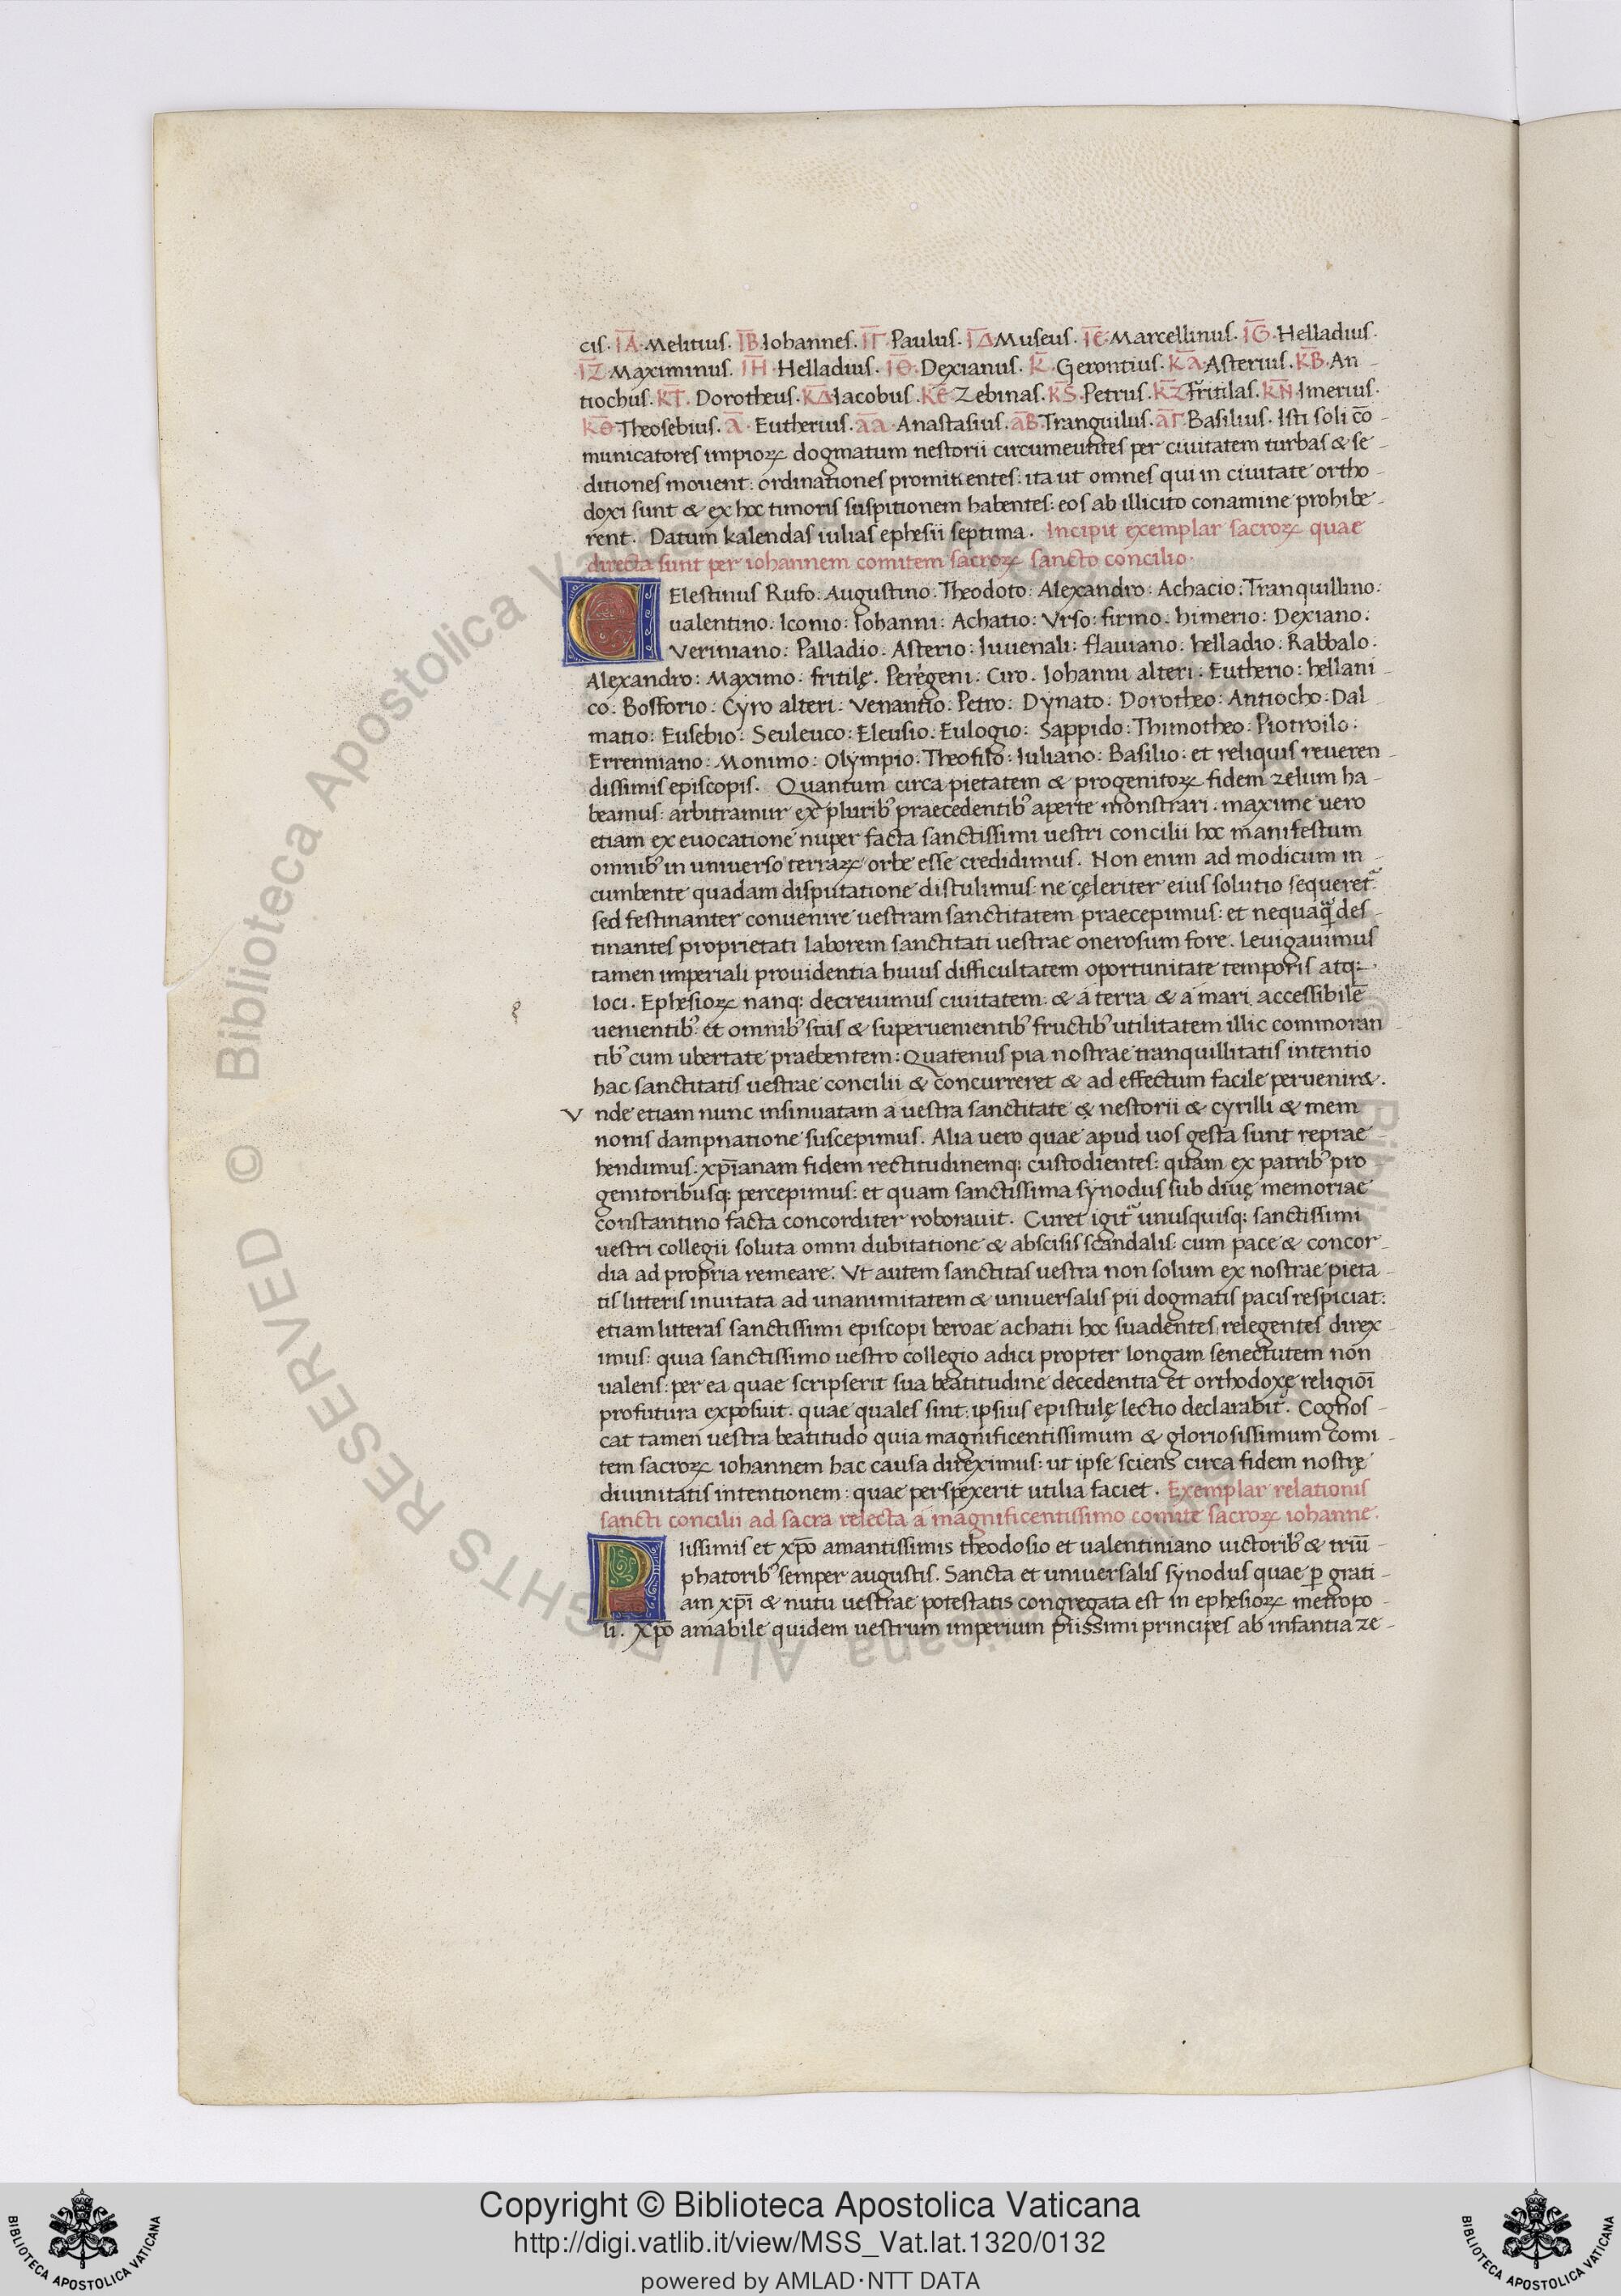 cis. I͞A. Melitius. I͞B. Iohannes. I͞Γ. Paulus. I͞Δ Museus. I͞E. Marcellinus. I͞G. Helladius.
I͞Z. Maximinus. I͞H. Helladius. I͞Θ. Dexianus. K͞. Gerontius. K͞A. Asterius. K͞B. An-
tiochus. K͞T. Dorotheus. K͞Δ Iacobus. K͞E Zebinas. K͞S. Petrus. K͞Z Fritilas. K͞N. Imerius.
K͞Θ Theosebius. A͞. Eutherius. a͞a. Anastasius. a͞B Tranquilus. a͞Γ. Basilius. Isti soli co͞-
municatores impioꝝ dogmatum nestorii circumeuntes per ciuitatem turbas & se-
ditiones mouent: ordinationes promittentes: ita ut omnes qui in ciuitate ortho-
doxi sunt & ex hoc timoris suspitionem habentes: eos ab illicito conamine prohibe-
rent. Datum kalendas iulias ephesii septima. Incipit exemplar sacroꝝ quae
directa sunt per iohannem comitem sacroꝝ sancto concilio.
CElestinus Rufo: Augustino: Theodoto: Alexandro: Achacio: Tranquillino:
ualentino: Iconio: Iohanni: Achatio: Vrso: firmo: himerio: Dexiano:
Veriniano: Palladio: Asterio: Iuuenali: flauiano: helladio: Rabbalo:
Alexandro: Maximo: fritilę. Peregeni: Ciro. Iohanni alteri: Eutherio: hellani
co: Bosforio: Cyro alteri: Venantio: Petro: Dynato: Dorotheo: Antiocho: Dal-
matio: Eusebio: Seuleuco: Eleusio: Eulogio: Sappido: Thimotheo: Piotroilo:
Errenniano: Monimo: Olympio: Theofilo: Iuliano: Basilio: et reliquis reueren-
dissimis episcopis. Quantum circa pietatem & progenitoꝝ fidem zelum ha-
beamus: arbitramur ex plurib' praecedentib' aperte monstrari. maxime uero
etiam ex euocatione nuper facta sanctissimi uestri concilii hoc manifestum
omnib' in uniuerso terraꝝ orbe esse credidimus. Non enim ad modicum in-
cumbente quadam disputatione distulimus: ne cęleriter eius solutio sequeret᷑:
sed festinanter conuenire uestram sanctitatem praecepimus: et nequaq̃ des-
tinantes proprietati laborem sanctitati uestrae onerosum fore. Leuigauimus
tamen imperiali prouidentia huius difficultatem oportunitate temporis atq:
loci. Ephesioꝝ nanq: decreuimus ciuitatem: & a terra & a mari accessibile͞
uenientib': et omnib' suis & superuenientib' fructib' utilitatem illic commoran
tib' cum ubertate praebentem: Quatenus pia nostrae tranquillitatis intentio
hac sanctitatis uestrae concilii & concurreret & ad effectum facile peruenir&.
Vnde etiam nunc insinuatam a uestra sanctitate & nestorii & cyrilli & mem
nonis dampnatione suscepimus. Alia uero quae apud uos gesta sunt reprae-
hendimus: xp͞ianam fidem rectitudinemq: custodientes: quam ex patrib' pro
genitoribusq: percepimus: et quam sanctissima synodus sub diuę memoriae
constantino facta concorditer roborauit. Curet igit᷑ unusquisq: sanctissimi
uestri collegii soluta omni dubitatione & abscisis scandalis: cum pace & concor-
dia ad propria remeare. Vt autem sanctitas uestra non solum ex nostrae pieta-
tis litteris inuitata ad unanimitatem & uniuersalis pii dogmatis pacis respiciat:
etiam litteras sanctissimi episcopi beroae achatii hoc suadentes relegentes direx-
imus: quia sanctissimo uestro collegio adici propter longam senectutem non
ualens: per ea quae scripserit sua beatitudine decedentia et orthodoxę religio͞i
profutura exposuit. quae quales sint: ipsius epistulę lectio declarabit᷑. Cognos-
cat tamen uestra beatitudo quia magnificentissimum & gloriosissimum comi-
tem sacroꝝ iohannem hac causa direximus: ut ipse sciens circa fidem nostrę
diuinitatis intentionem: quae perspexerit utilia faciet. Exemplar relationis
sancti concilii ad sacra relecta a magnificentissimo comite sacroꝝ iohanne.
PIissimis et xp͞o amantissimis theodosio et ualentiniano uictorib' & triu͞-
phatorib' semper augustis. Sancta et uniuersalis synodus quae ꝑ grati-
am xp͞i & nutu uestrae potestatis congregata est in ephesioꝝ metropo-
li. Xp͞o amabile quidem uestrum imperium piissimi principes ab infantia ze-
© Biblioteca Apostolica Vaticana ALL RIGHTS RESERVED
Copyright © Biblioteca Apostolica Vaticana
http://digi.vatlib.it/view/MSS_Vat.lat.1320/0132
powered by AMLAD·NTT DATA
BIBLIOTECA APOSTOLICA VATICANA
BIBLIOTECA APOSTOLICA VATICANA